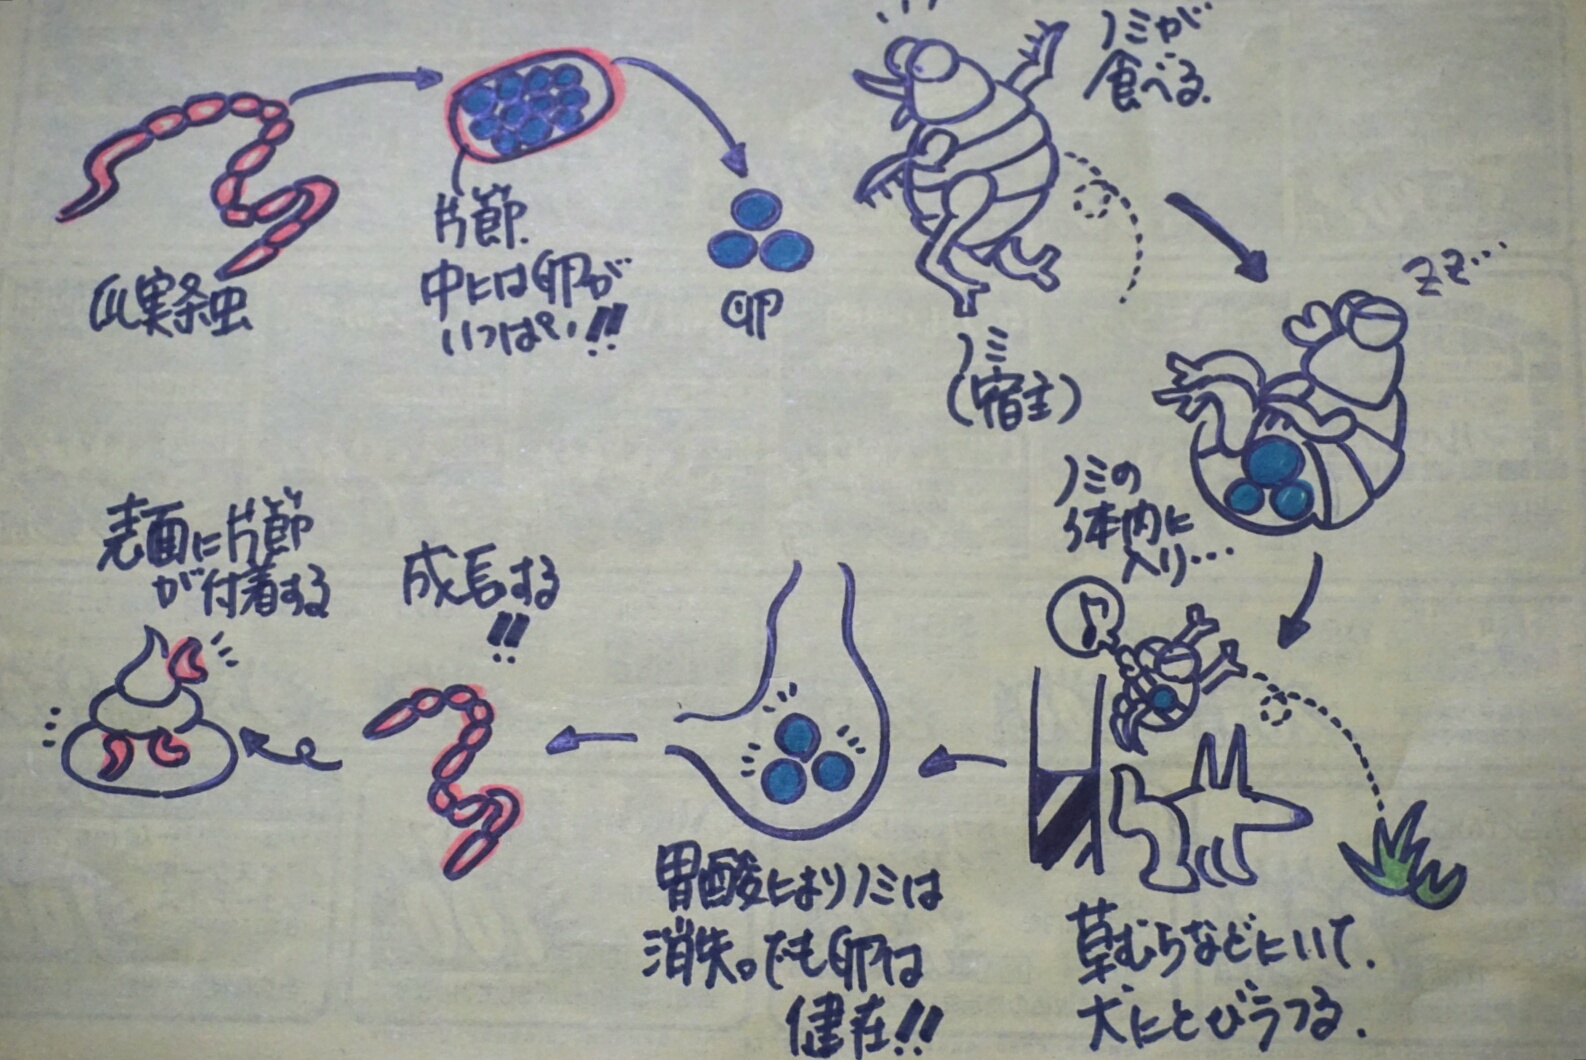 瓜実条虫
片節.
中には卵が
いっぱい!!
卵
ノミが
食べる.
ノミ
(宿主)
ZZ…
ノミの
体内に
入り…
草むらなどにいて.
犬にとびうつる.
胃酸によりノミは
消失。でも卵は
健在!!
成長する
!!
表面に片節
が付着する